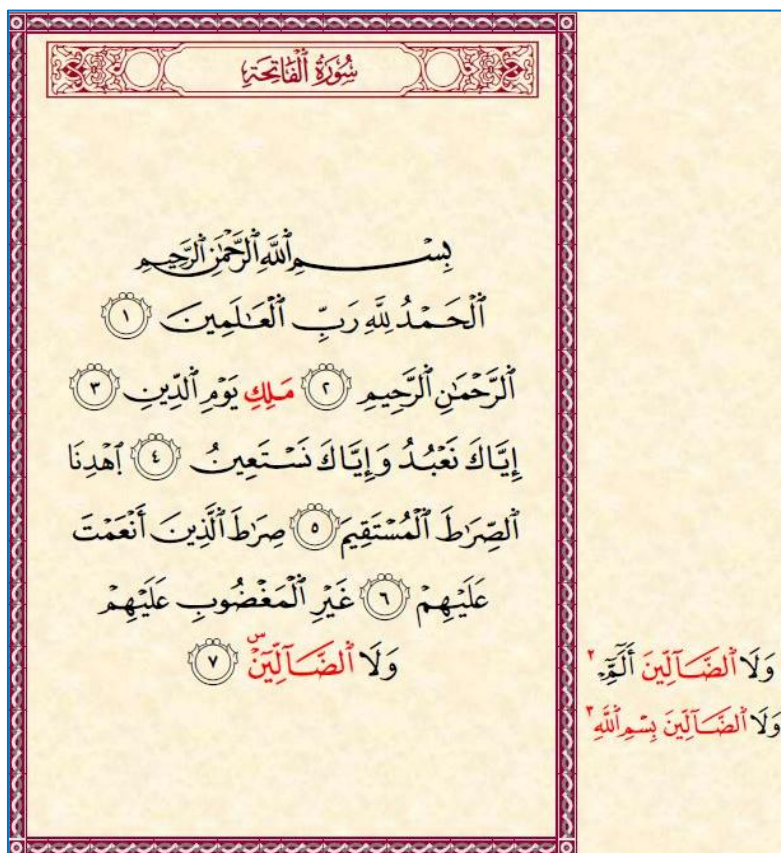 سُورَةُ ٱلْفَاتِحَةِ
بِسْمِ ٱللَّهِ ٱلرَّحْمَٰنِ ٱلرَّحِيمِ
ٱلْحَمْدُ لِلَّهِ رَبِّ ٱلْعَٰلَمِينَ ١
ٱلرَّحْمَٰنِ ٱلرَّحِيمِ ٢ مَلِكِ يَوْمِ ٱلدِّينِ ٣
إِيَّاكَ نَعْبُدُ وَإِيَّاكَ نَسْتَعِينُ ٤ ٱهْدِنَا
ٱلصِّرَٰطَ ٱلْمُسْتَقِيمَ ٥ صِرَٰطَ ٱلَّذِينَ أَنْعَمْتَ
عَلَيْهِمْ ٦ غَيْرِ ٱلْمَغْضُوبِ عَلَيْهِمْ
وَلَا ٱلضَّآلِّينَۜ ٧
وَلَا ٱلضَّآلِّينَ أَلَٓمِّٓ ٢
وَلَا ٱلضَّآلِّينَ بِسْمِ ٱللَّهِ ٣